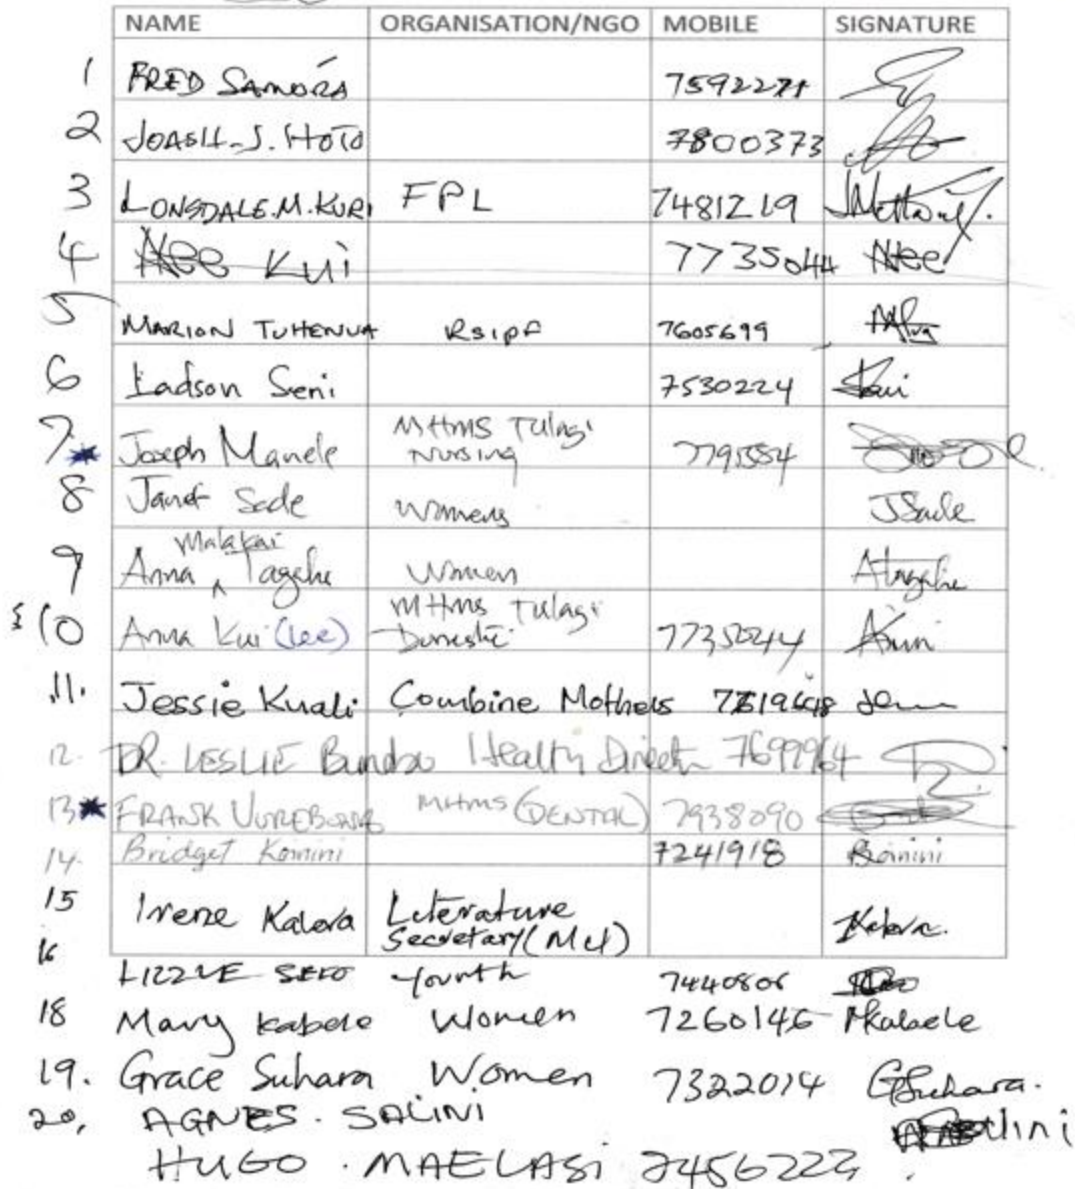 NAME ORGANISATION/NGO MOBILE SIGNATURE
1 FRED SAMORA 7592271
2 JOASH-J. HOTO 7800373
3 LONSDALE.M.KURI FPL 7481219
4 Kui 7735044
5 MARION TUHENUA RSIPF 7605699
6 Ladson Seni 7530224
7 Joseph Manele MHMS Tulagi Nursing 7795584
8 Janet Sade Womens JSade
9 Anna Malakai Tagehe Women Atagehe
10 Anna Kui (Lee) MHMS Tulagi Domestic 7735044
11. Jessie Kuali Combine Mothers
12. DR. LESLIE Health 7699964
13 FRANK MHMS (DENTAL) 7938090
14. Bridget Komini 7241918
15 Irene Kalova Literature Secretary (MU) Kalova.
16
LIZZIE SEKO Youth 7440806
18 Mary Kabele Women 7260146 Mkabele
19. Grace Suhara Women 7322014 GSuhara.
20, AGNES. SALINI
HUGO. MAELASI 7456222